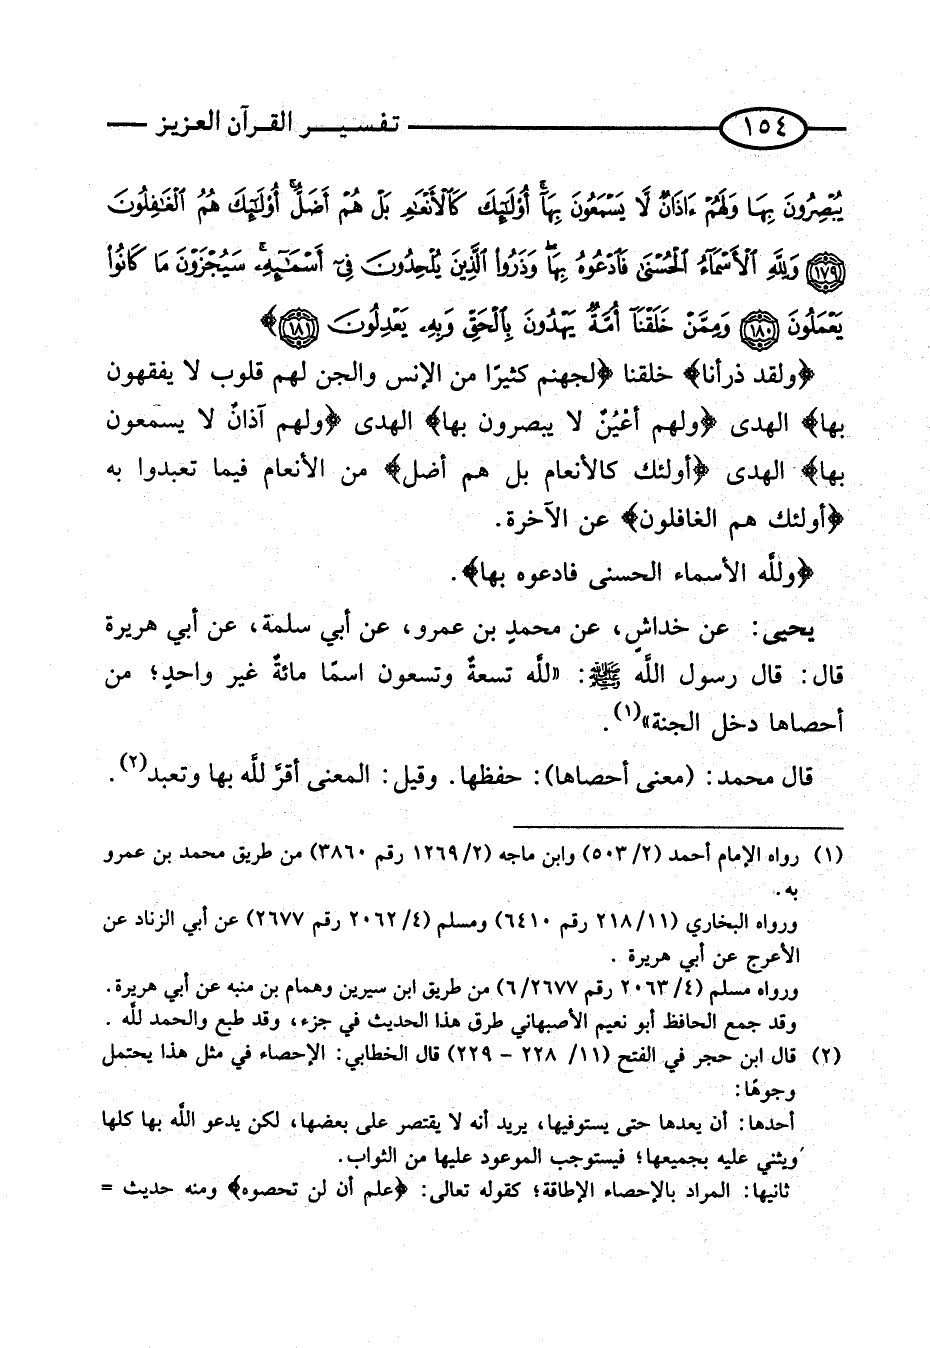 ١٥٤ تفسير القرآن العزيز
يُبْصِرُونَ بِهَا وَلَهُمْ ءَاذَانٌ لَّا يَسْمَعُونَ بِهَآ أُوْلَٰٓئِكَ كَٱلْأَنْعَٰمِ بَلْ هُمْ أَضَلُّ أُوْلَٰٓئِكَ هُمُ ٱلْغَٰفِلُونَ
﴿١٧٩﴾ وَلِلَّهِ ٱلْأَسْمَآءُ ٱلْحُسْنَىٰ فَٱدْعُوهُ بِهَا وَذَرُوا۟ ٱلَّذِينَ يُلْحِدُونَ فِىٓ أَسْمَٰٓئِهِۦ سَيُجْزَوْنَ مَا كَانُوا۟
يَعْمَلُونَ ﴿١٨٠﴾ وَمِمَّنْ خَلَقْنَآ أُمَّةٌ يَهْدُونَ بِٱلْحَقِّ وَبِهِۦ يَعْدِلُونَ ﴿١٨١﴾﴾
﴿ولقد ذرأنا﴾ خلقنا ﴿لجهنم كثيرًا من الإنس والجن لهم قلوب لا يفقهون
بها﴾ الهدى ﴿ولهم أعْيُنٌ لا يبصرون بها﴾ الهدى ﴿ولهم آذانٌ لا يسمعون
بها﴾ الهدى ﴿أولئك كالأنعام بل هم أضل﴾ من الأنعام فيما تعبدوا به
﴿أولئك هم الغافلون﴾ عن الآخرة.
﴿وللَّه الأسماء الحسنى فادعوه بها﴾.
يحيى: عن خداشٍ، عن محمدٍ بن عمرو، عن أبي سلمة، عن أبي هريرة
قال: قال رسول اللَّه ﷺ: «للَّه تسعةٌ وتسعون اسمًا مائةٌ غير واحدٍ؛ من
أحصاها دخل الجنة»(١).
قال محمد: (معنى أحصاها): حفظها. وقيل: المعنى أقرَّ للَّه بها وتعبد(٢).
(١) رواه الإمام أحمد (٢/ ٥٠٣) وابن ماجه (٢/ ١٢٦٩ رقم ٣٨٦٠) من طريق محمد بن عمرو
به.
ورواه البخاري (١١/ ٢١٨ رقم ٦٤١٠) ومسلم (٤/ ٢٠٦٢ رقم ٢٦٧٧) عن أبي الزناد عن
الأعرج عن أبي هريرة .
ورواه مسلم (٤/ ٢٠٦٣ رقم ٢٦٧٧/ ٦) من طريق ابن سيرين وهمام بن منبه عن أبي هريرة.
وقد جمع الحافظ أبو نعيم الأصبهاني طرق هذا الحديث في جزء، وقد طبع والحمد للَّه .
(٢) قال ابن حجر في الفتح (١١/ ٢٢٨ - ٢٢٩) قال الخطابي: الإحصاء في مثل هذا يحتمل
وجوهًا:
أحدها: أن يعدها حتى يستوفيها، يريد أنه لا يقتصر على بعضها، لكن يدعو اللَّه بها كلها
ويثني عليه بجميعها؛ فيستوجب الموعود عليها من الثواب.
ثانيها: المراد بالإحصاء الإطاقة؛ كقوله تعالى: ﴿علم أن لن تحصوه﴾ ومنه حديث =